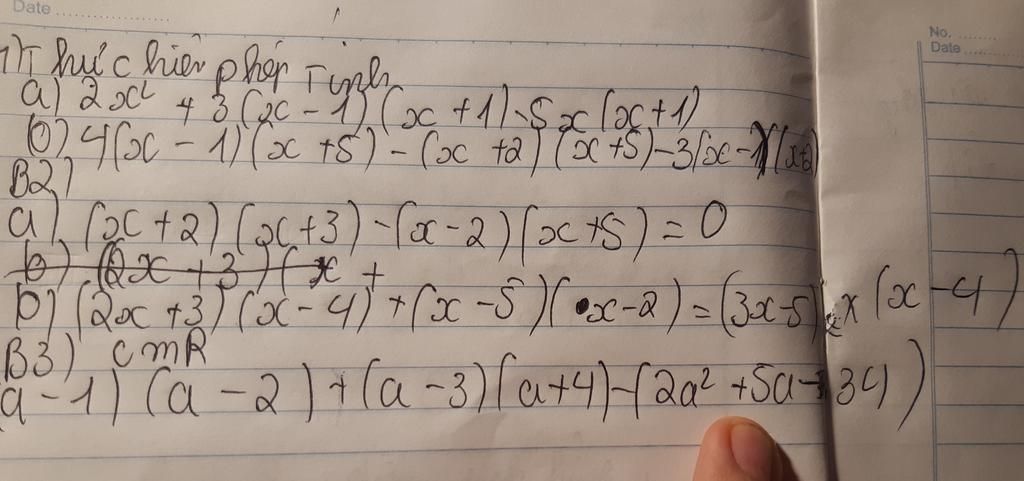 Date
No.
Date
1) Thức hiện phép Tính
a) 2x² + 3(x - 1)(x + 1) - 5x(x+1)
b) 4(x - 1)(x + 5) - (x + 2)(x + 5) - 3(x - 1)(x+2)
B2)
a) (x + 2)(x + 3) - (x - 2)(x + 5) = 0
b) (2x + 3)(x +
b) (2x + 3)(x - 4) + (x - 5)(x - 2) = (3x - 5)(x - 4)
B3) CMR
a - 1)(a - 2) + (a - 3)(a + 4) - (2a² + 5a - 34)